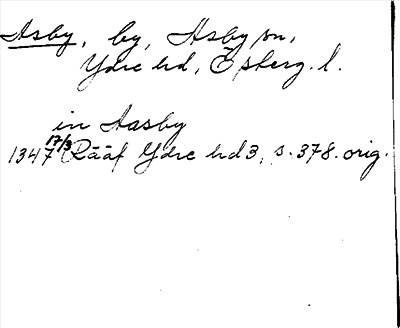 Asby, by, Asby sn,
Ydre hd, Österg. l.
in Aasby
1347 17/3 Rääf Ydre hd 3, s. 378. orig.